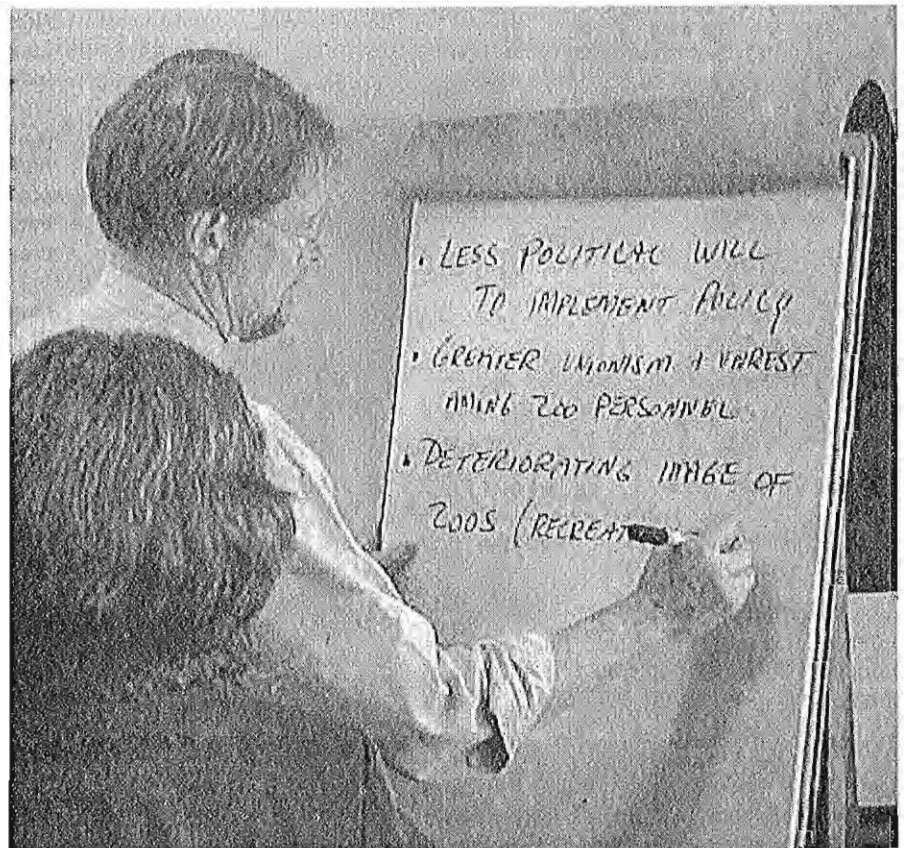 • LESS POLITICAL WILL
TO IMPLEMENT POLICY
• GREATER UNIONISM + UNREST
AMING ZOO PERSONNEL
• DETERIORATING IMAGE OF
ZOOS (RECREAT